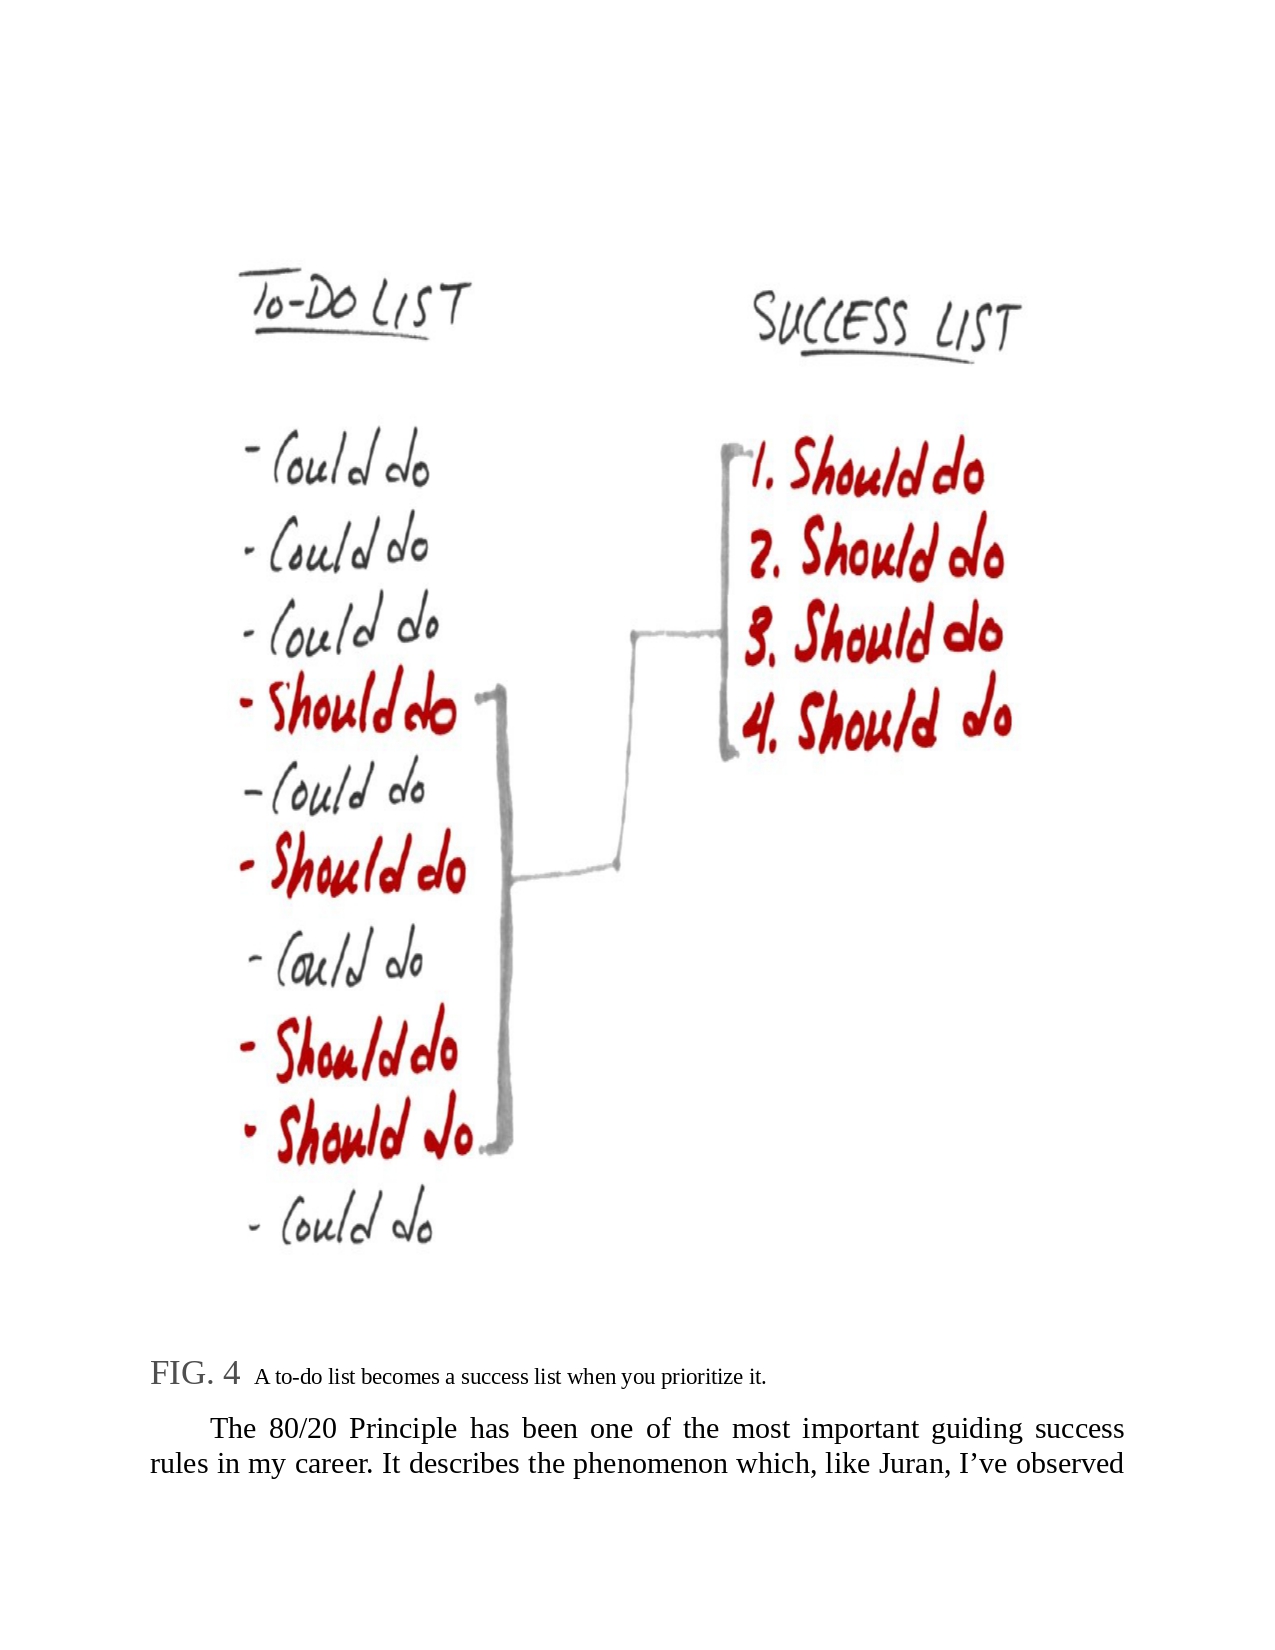 TO-DO LIST
- Could do
- Could do
- Could do
- Should do
- Could do
- Should do
- Could do
- Should do
- Should do
- Could do
SUCCESS LIST
1. Should do
2. Should do
3. Should do
4. Should do
FIG. 4 A to-do list becomes a success list when you prioritize it.
The 80/20 Principle has been one of the most important guiding success
rules in my career. It describes the phenomenon which, like Juran, I’ve observed